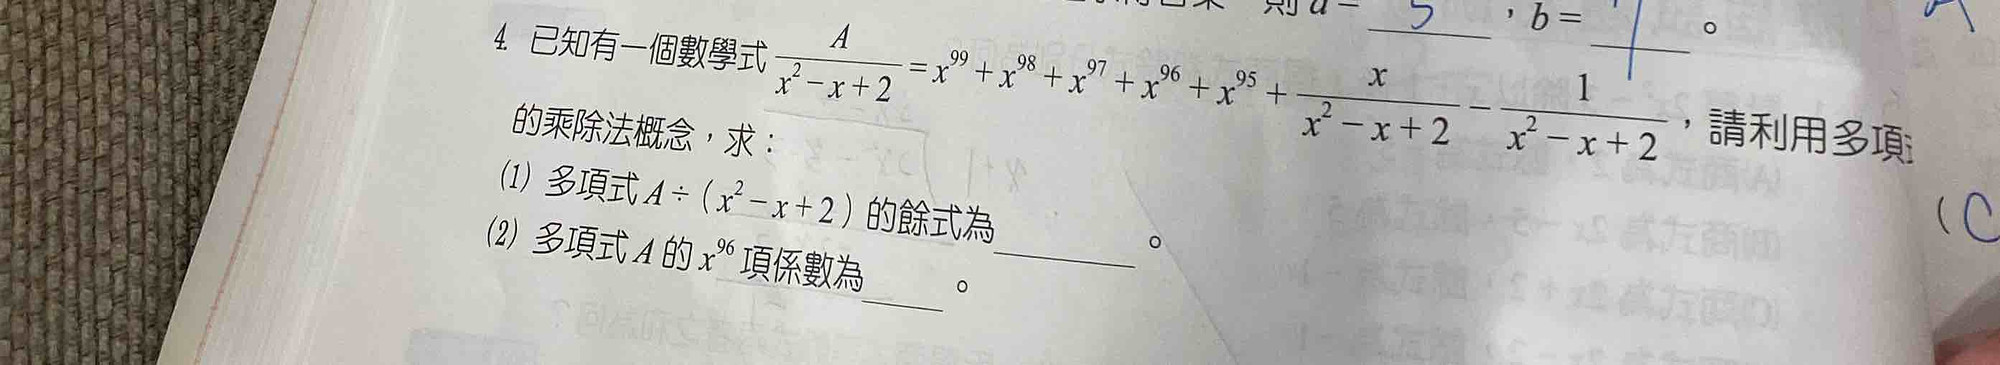 則 a = 5 ，b = 1 。
4. 已知有一個數學式 \frac{A}{x^2-x+2} = x^{99}+x^{98}+x^{97}+x^{96}+x^{95}+\frac{x}{x^2-x+2}-\frac{1}{x^2-x+2}，請利用多項
的乘除法概念，求：
(1) 多項式 A ÷ ( x^2 - x + 2 ) 的餘式為______。
(C
(2) 多項式 A 的 x^{96} 項係數為____。